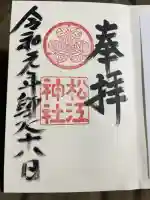 奉拝
松江
神社
令和元年部八月十八日